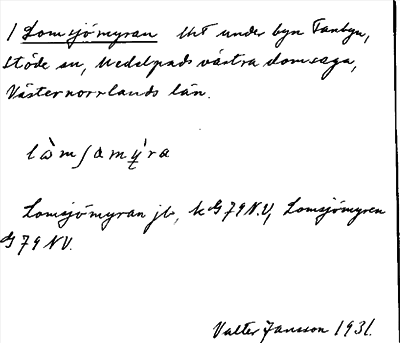 1 Lomsjömyran Urt under byn Fanbyn,
Stöde sn, Medelpads västra domsaga,
Västernorrlands län.
lòmʃamy̌ra
Lomsjömyran jb, k G79N.V, Lomsjömyren
G79NV.
Valter Jansson 1931.